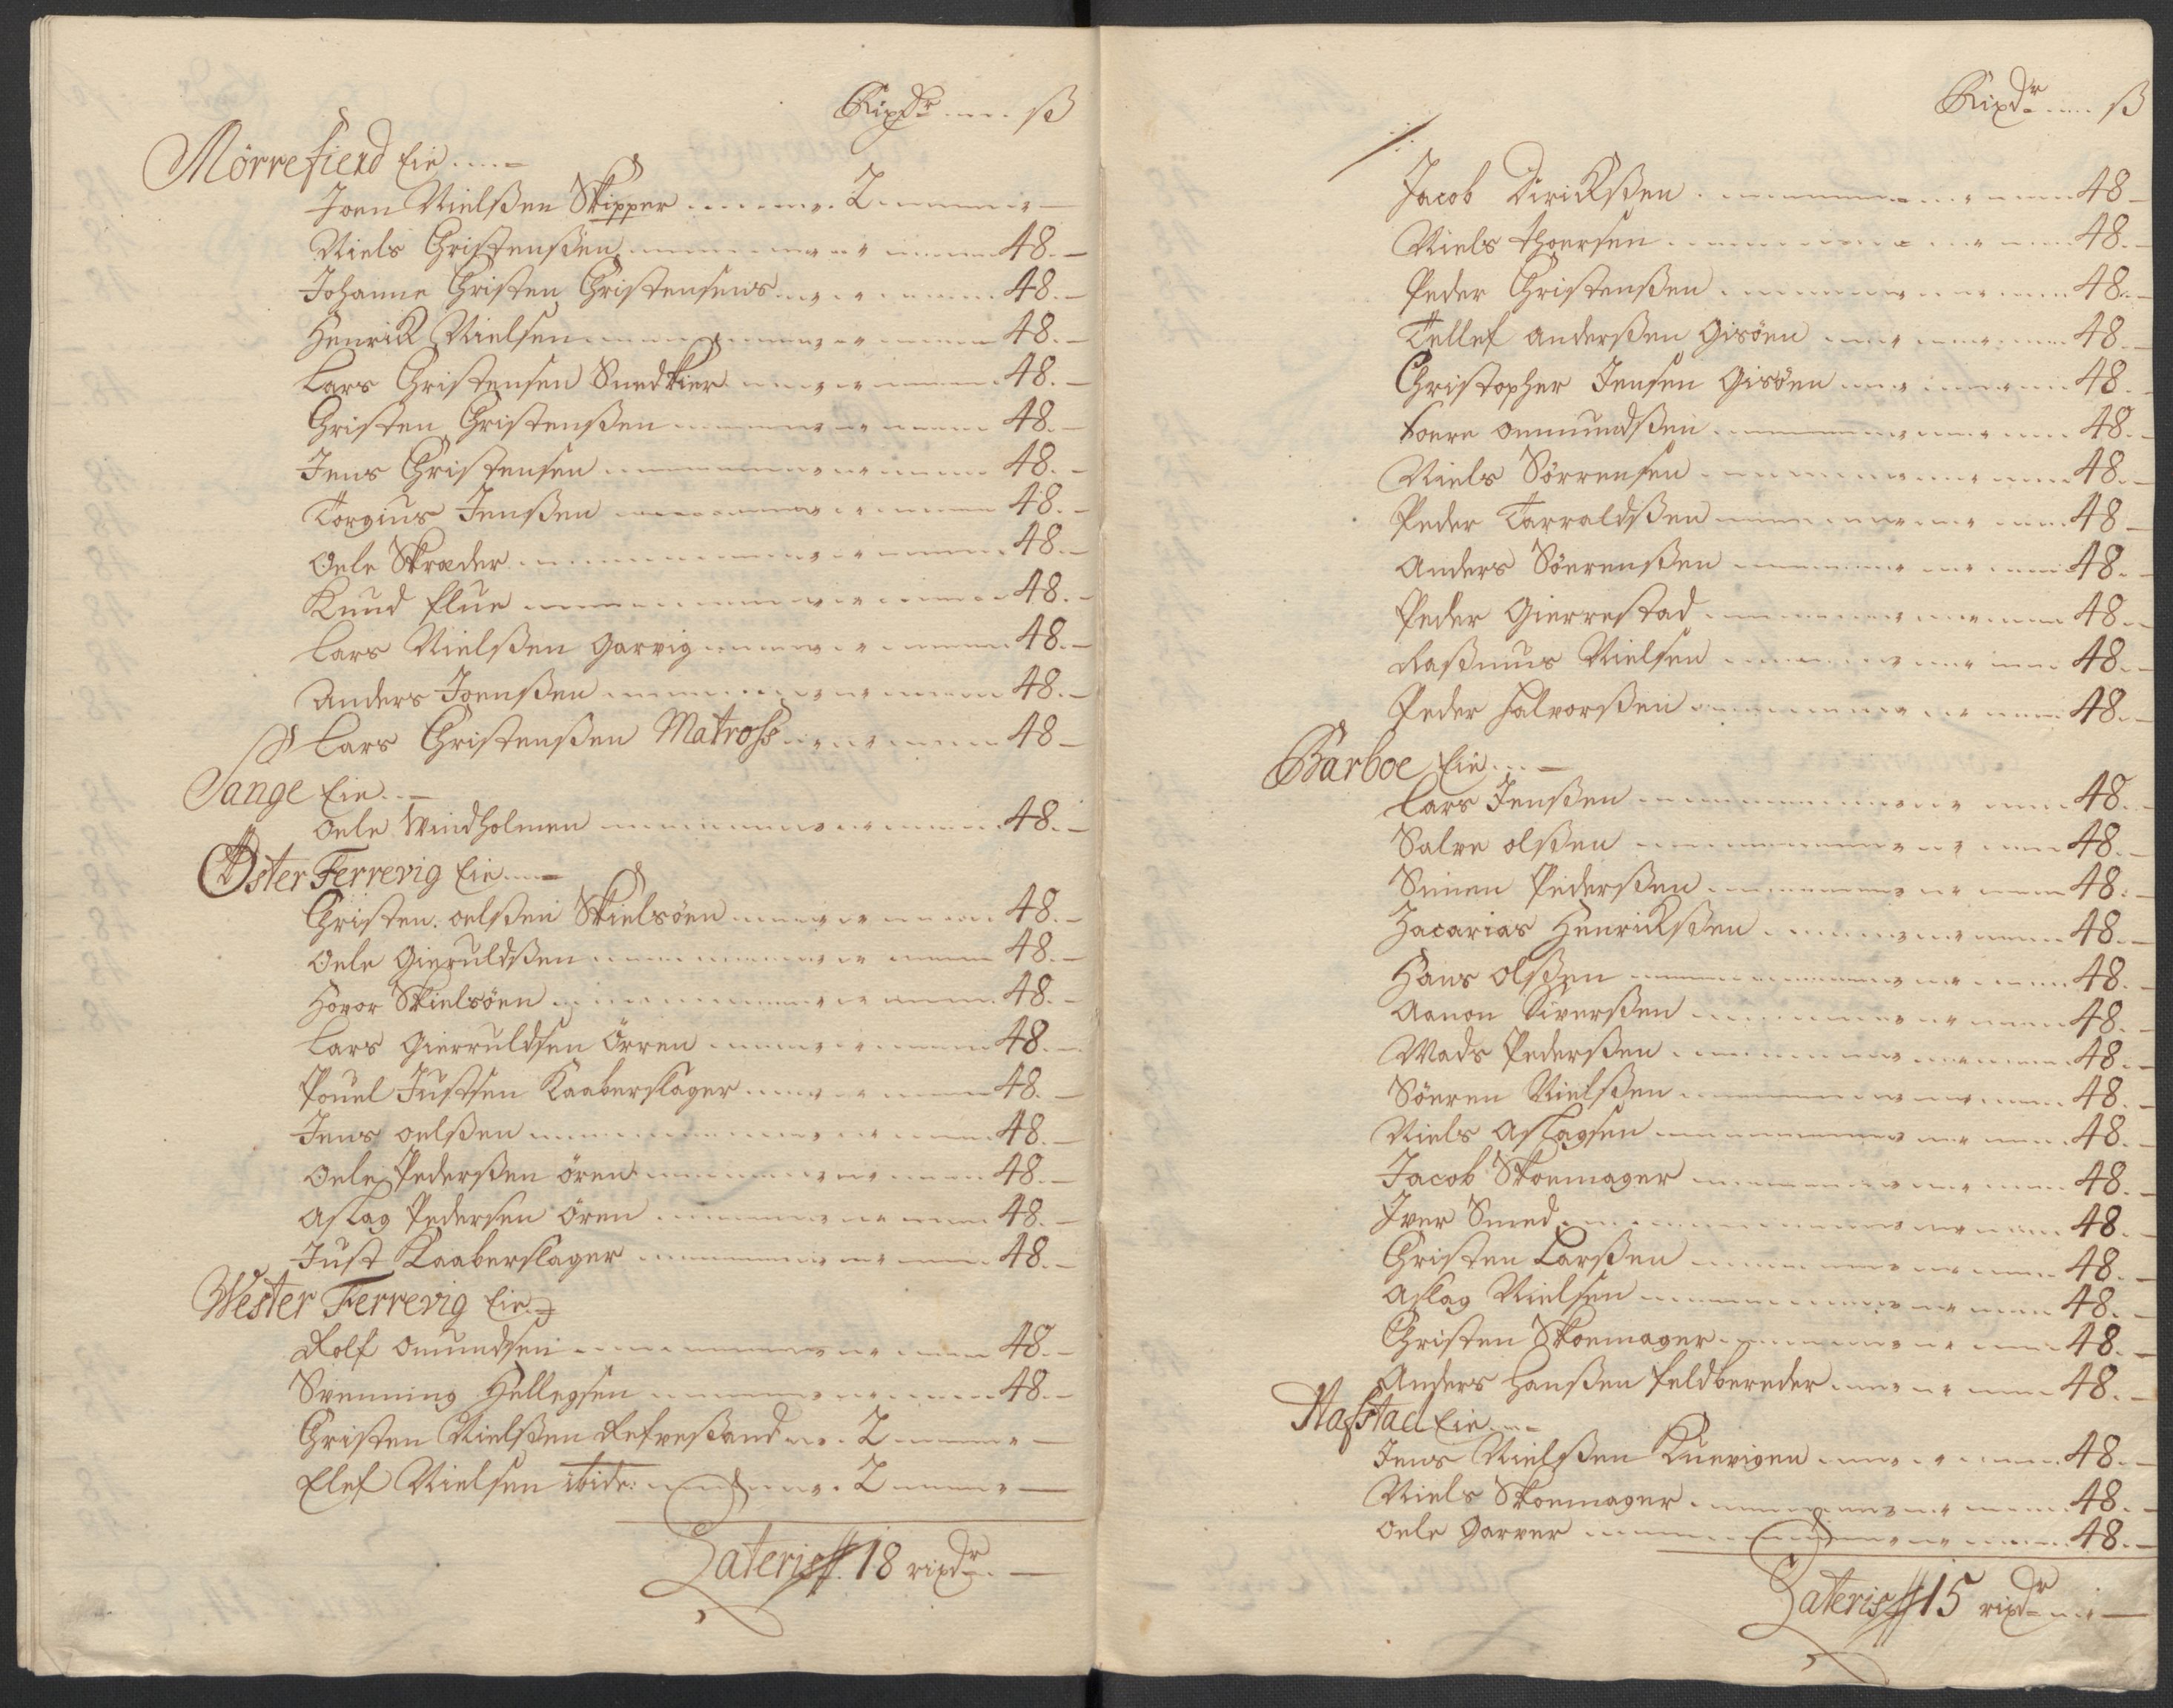 Rixdr ß
Mörrefierd Eie
Joen Nielßen Skipper 2
Niels Christenßen 48
Johanne Christen Christensens 48
Henrik Nielsen 48
Lars Christensen Snedkier 48
Christen Christenßen 48
Jens Christensen 48
Torgius Jenßen 48
Oele Skræder 48
Knud flue 48
Lars Nielßen garvig 48
Anders Joenßen 48
Lars Christenßen Matroß 48
Sange Eie
Oele Windholmen 48
Øster Ferrevig Eie
Christen oelßen Skielsöen 48
Oele Gieruldßen 48
Hovor Skielsöen 48
Lars Gierruldsen Örren 48
Pouel Justsen Kaaberslager 48
Jens oelßen 48
Oele Pederßen ören 48
Aslag Pedersen Ören 48
Just Kaaberslager 48
Wester Ferrevig Eie
Rolf Omundsen 48
Svenning Hellegsen 48
Christen Nielßen Refveßand 2
Elef Nielsen ibidr: 2
Lateris 18 rixdr
Rixdr ß
Jacob Dirikßen 48
Niels Thoersen 48
Peder Christenßen 48
Tellef anderßen Gisöen 48
Christopher Jensen Gisöen 48
Toere oenmundßen 48
Niels Sörrensen 48
Peder Tarraldßen 48
Anders Söerenßen 48
Peder Gierrestad 48
Raßmus Nielsen 48
Peder Halvorßen 48
Barboe Eie
Lars Jenßen 48
Salve olßen 48
Simen Pederßen 48
Zacarias Henrikßen 48
Hans Olßen 48
Aanon Siverßen 48
Mads Pederßen 48
Söeren Nielßen 48
Niels Aslagsen 48
Jacob Skoemager 48
Iver Smed 48
Christen Larßen 48
Aslag Nielsen 48
Christen Skoemager 48
Anders Hanßen feldbereder 48
Hafstad Eie
Jens Nielßen Kuevigen 48
Niels Skoemager 48
Oele Garver 48
Lateris 15 rixdr